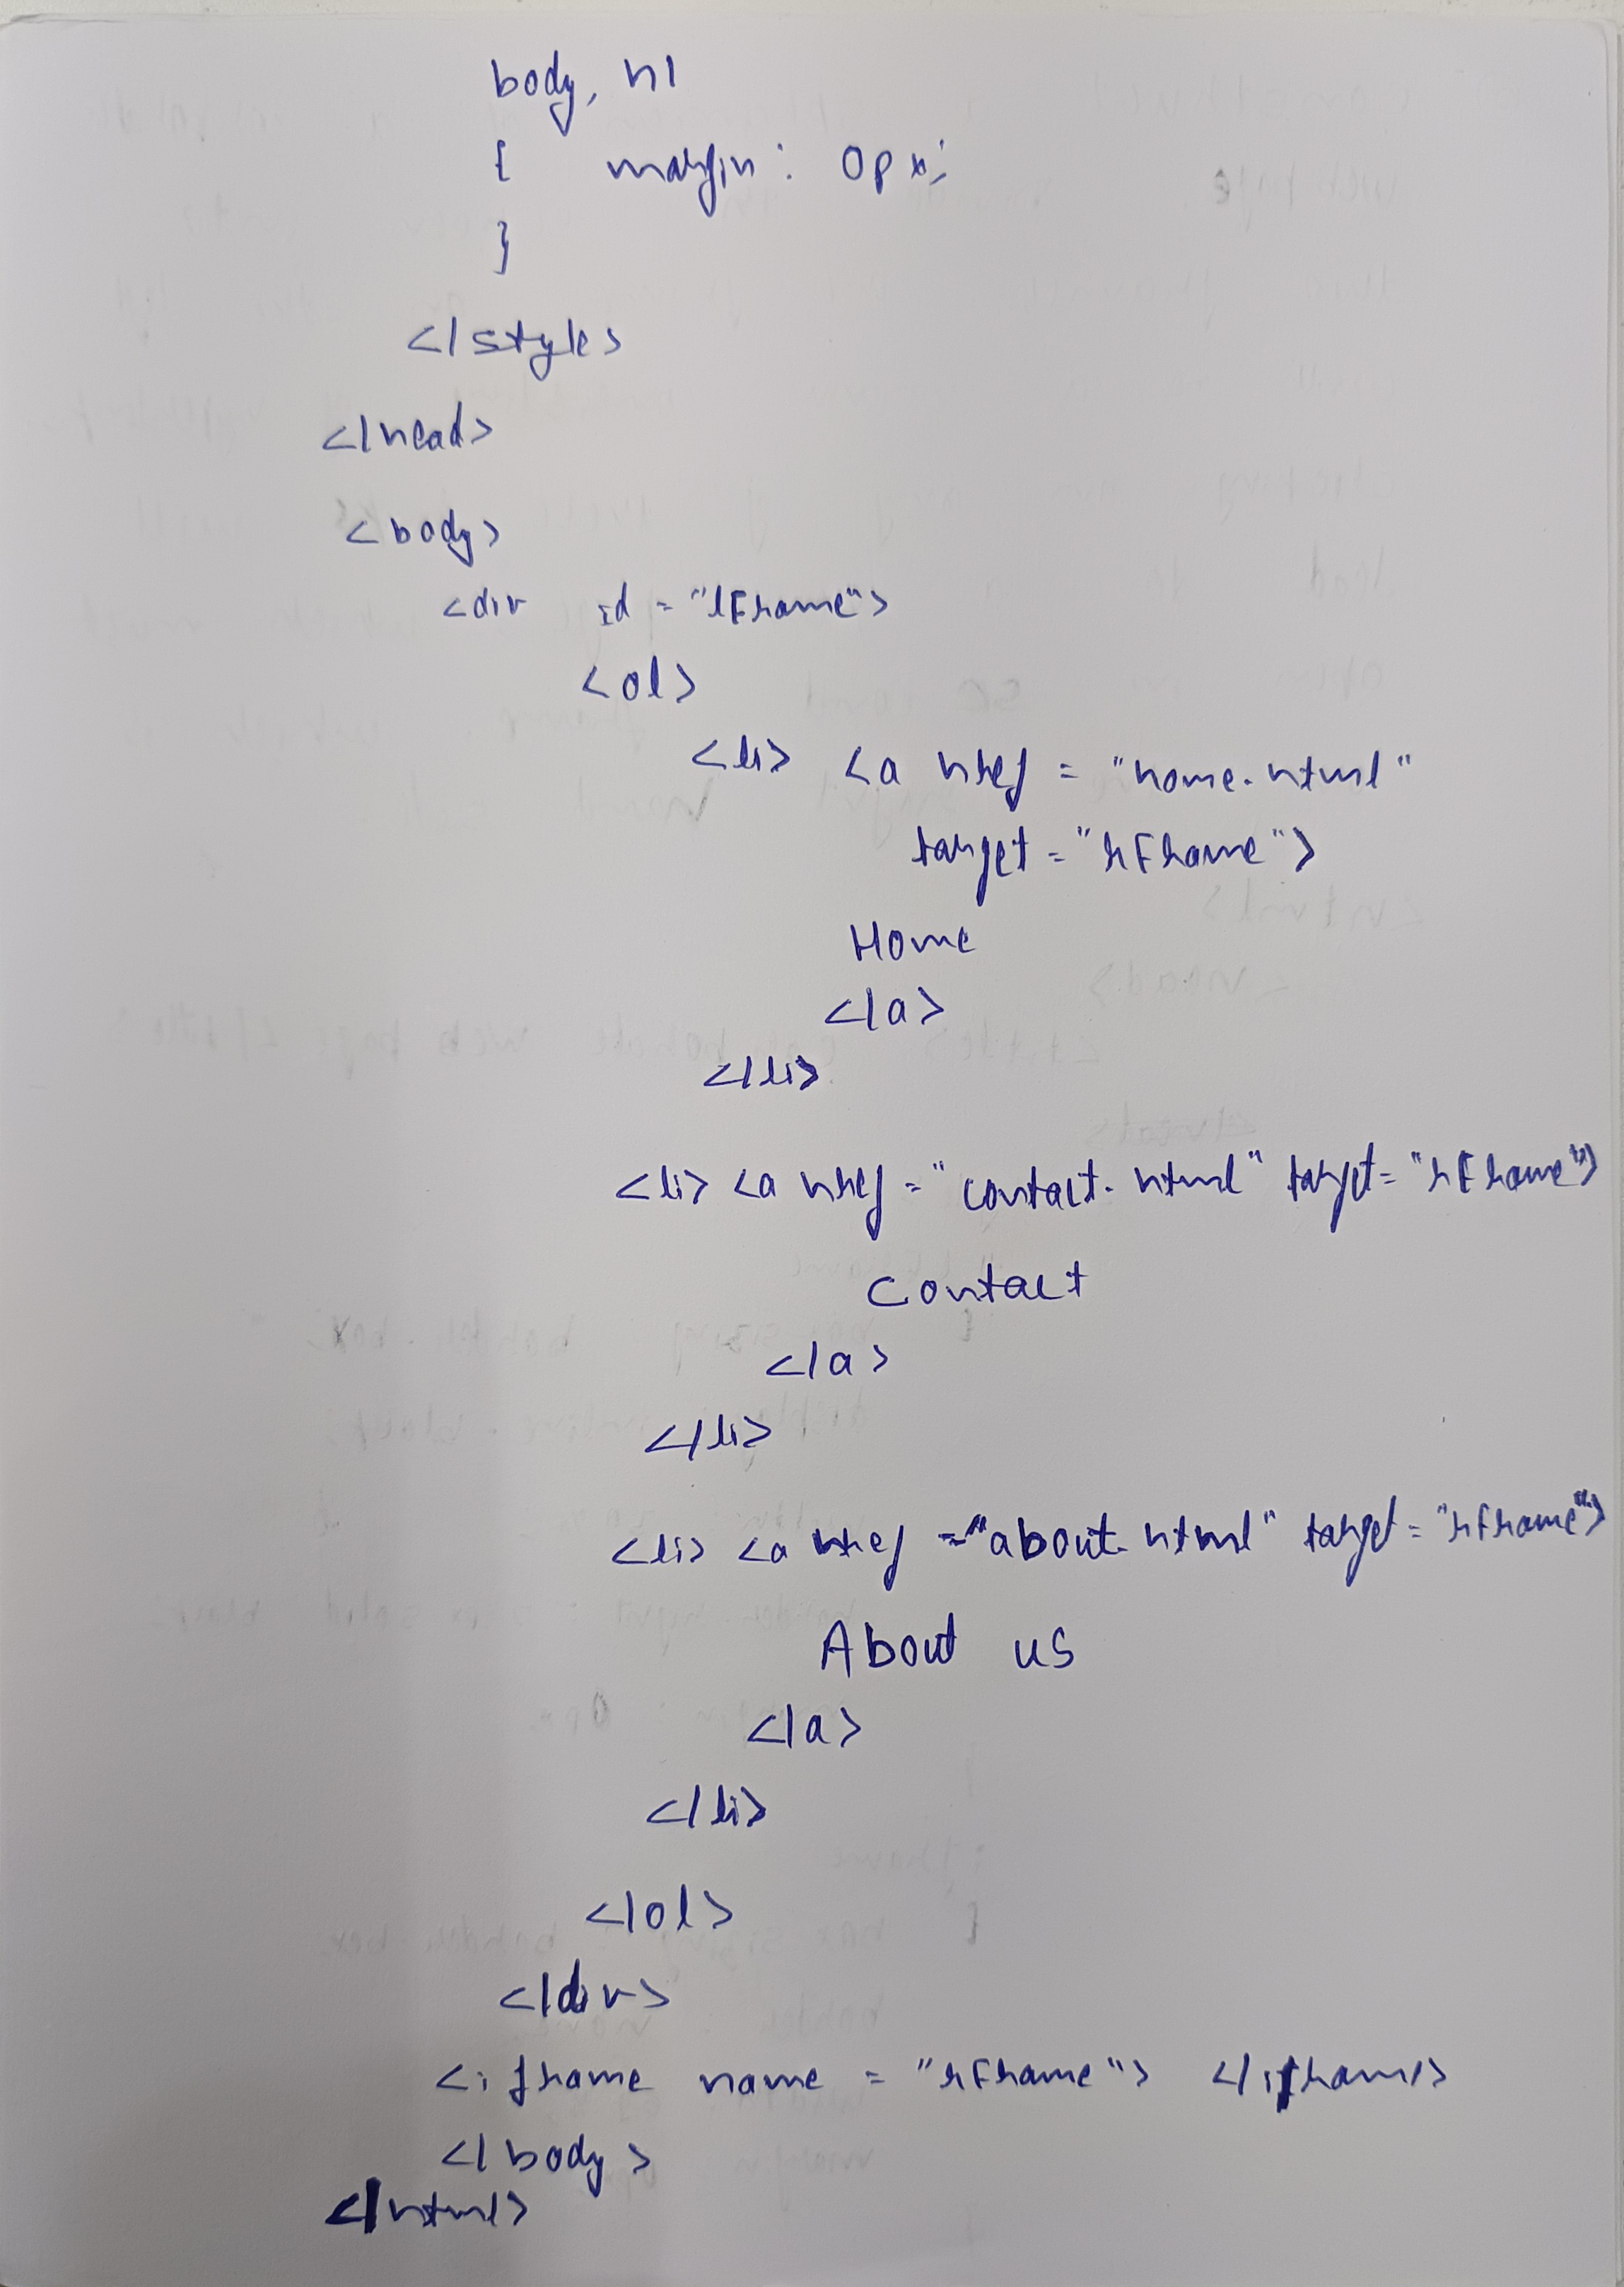 body, h1
{ margin: 0px;
}
</style>
</head>
<body>
<div id = "lFrame">
<ol>
<li> <a href = "home.html"
target = "rFrame">
Home
</a>
</li>
<li> <a href = "contact.html" target = "rFrame">
Contact
</a>
</li>
<li> <a href = "about.html" target = "rFrame">
About us
</a>
</li>
</ol>
</div>
<iframe name = "rFrame"> </iframe>
</body>
</html>